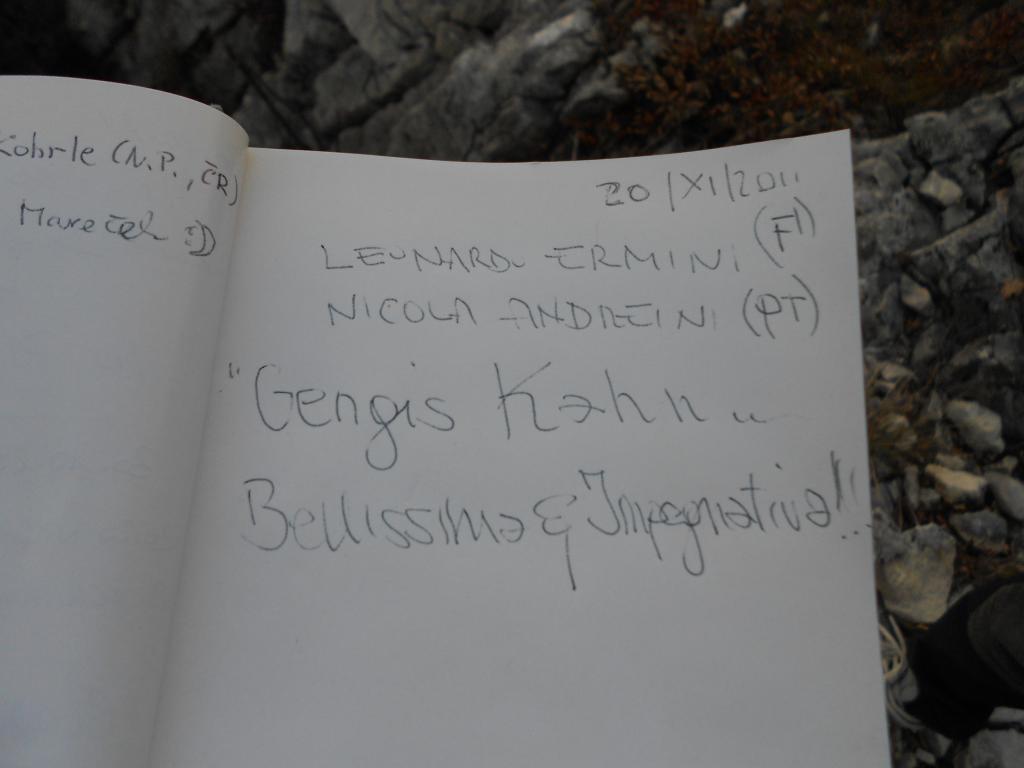 Köhrle (N.P., ČR)
Mareček :D
20/XI/2011
LEONARDO ERMINI (FI)
NICOLA ANDREINI (PT)
"Gengis Kahn"
Bellissima & Impegnativa!!